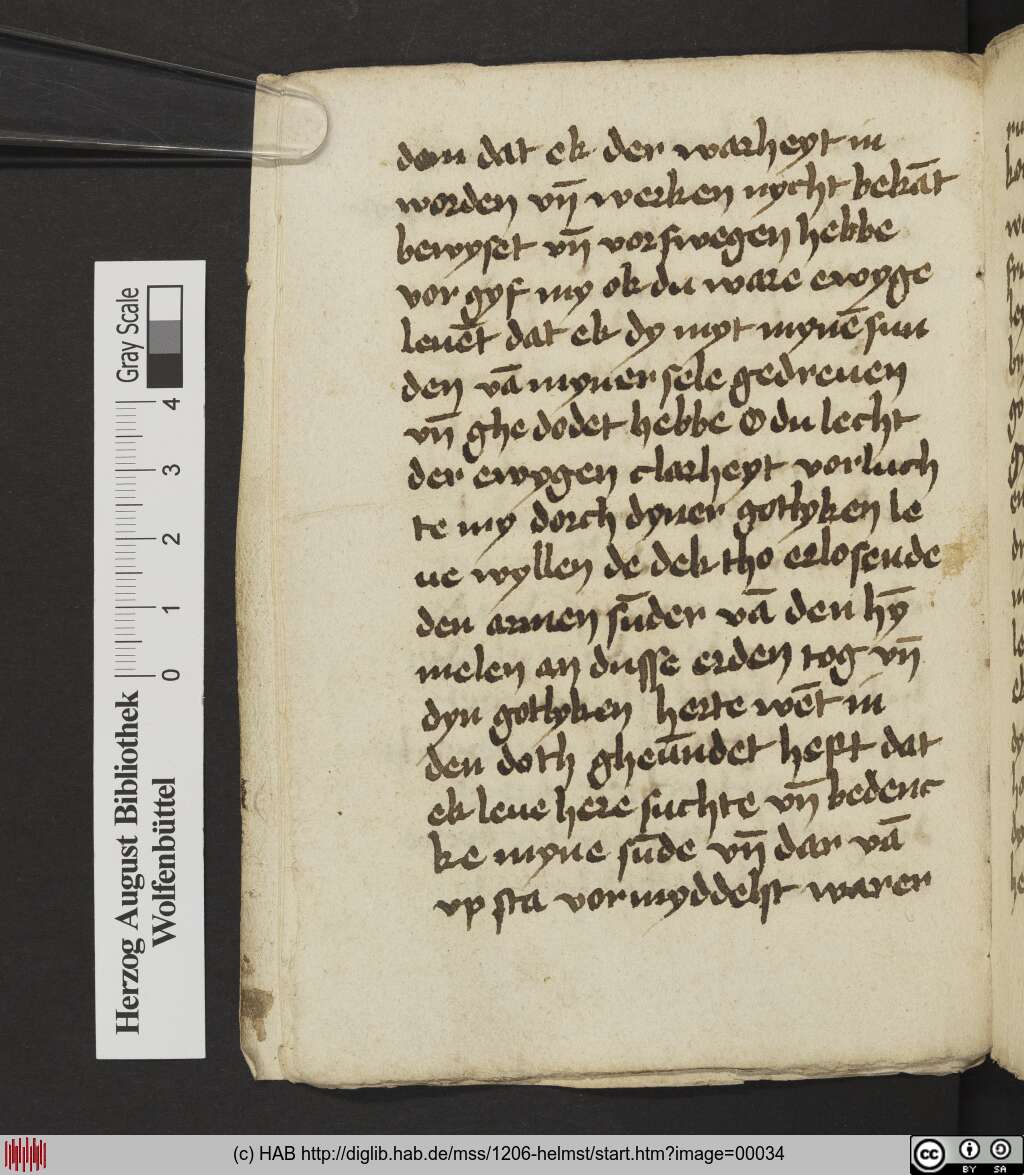 dem dat ek der warheyt in
worden vn̄ werken nycht bekāt
bewyset vn̄ vorswegen hebbe
vor gyf my ok du ware ewyge
leuēt dat ek dy myt mynē sun
den vā myner sele gedreuen
vn̄ ghe dodet hebbe O du lecht
der ewygen clarheyt vorluch
te my dorch dyner gotlyken le
ue wyllen de dek tho erlosende
den armen sūder vā den hȳ
melen an dusse erden tog vn̄
dyn gotlyken herte wēt in
den doth gheūndet heft dat
ek leue here suchte vn̄ bedenc
ke myne sūde vn̄ dar vā
vp sta vormyddelst warer
Herzog August Bibliothek
Wolfenbüttel
0 1 2 3 4
Gray Scale
(c) HAB http://diglib.hab.de/mss/1206-helmst/start.htm?image=00034
cc BY SA